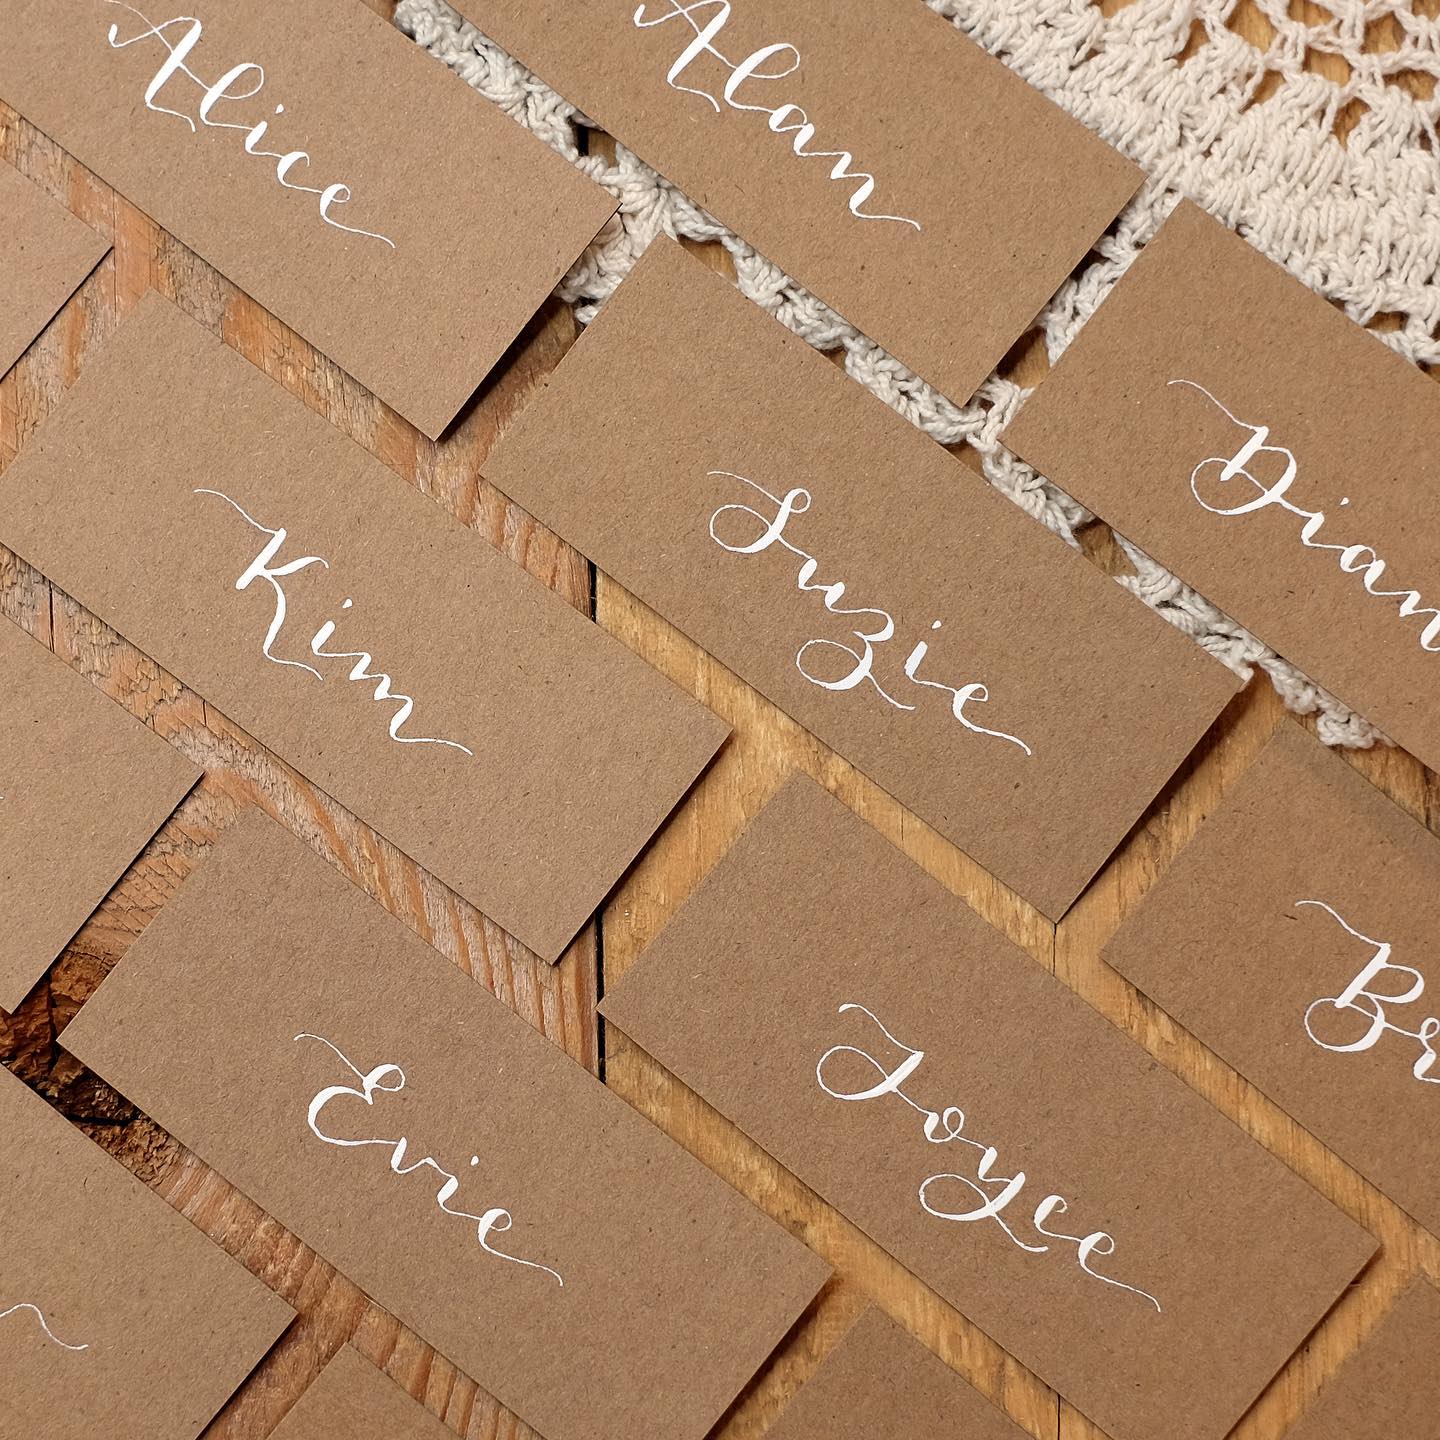 Alice
Alan
Kim
Suzie
Dian
Evie
Joyce
Br